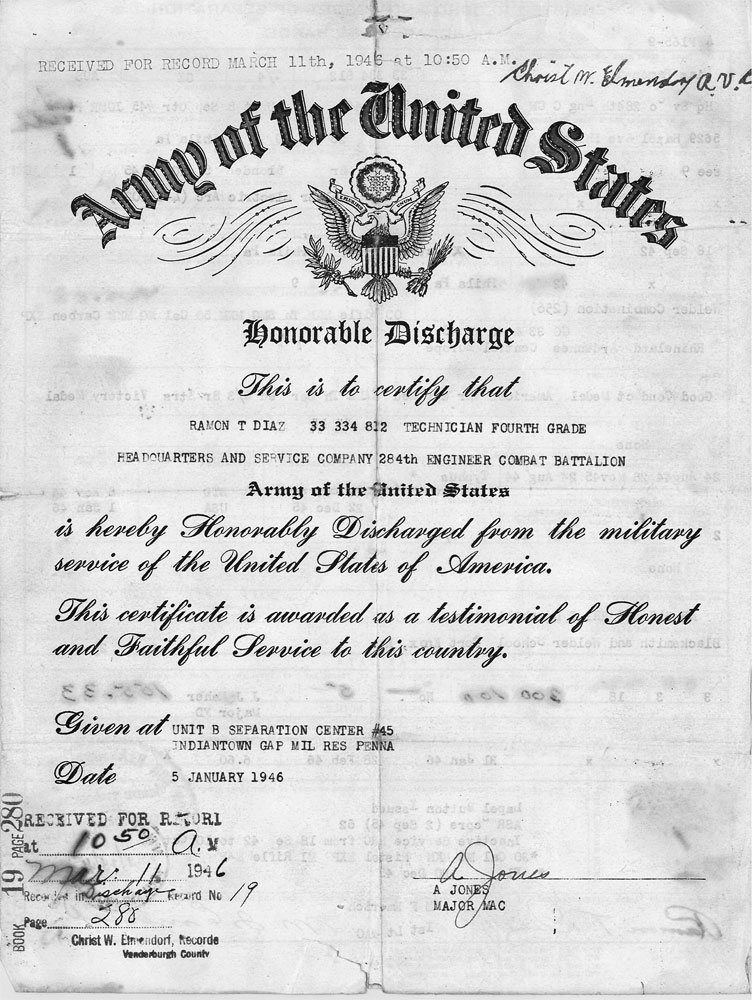 RECEIVED FOR RECORD MARCH 11th, 1946 at 10:50 A.M.
Christ W. Elmendorf R.V.C
Army of the United States
Honorable Discharge
This is to certify that
RAMON T DIAZ 33 334 812 TECHNICIAN FOURTH GRADE
HEADQUARTERS AND SERVICE COMPANY 284th ENGINEER COMBAT BATTALION
Army of the United States
is hereby Honorably Discharged from the military
service of the United States of America.
This certificate is awarded as a testimonial of Honest
and Faithful Service to this country.
Given at UNIT B SEPARATION CENTER #45
INDIANTOWN GAP MIL RES PENNA
Date 5 JANUARY 1946
RECEIVED FOR RECORD
at 10 50 A. M
Mar. 11 1946
Recorded in Discharge Record No 19
Page 280
Christ W. Elmendorf, Recorde
Vanderburgh County
BOOK 19 PAGE 280
A Jones
A JONES
MAJOR MAC